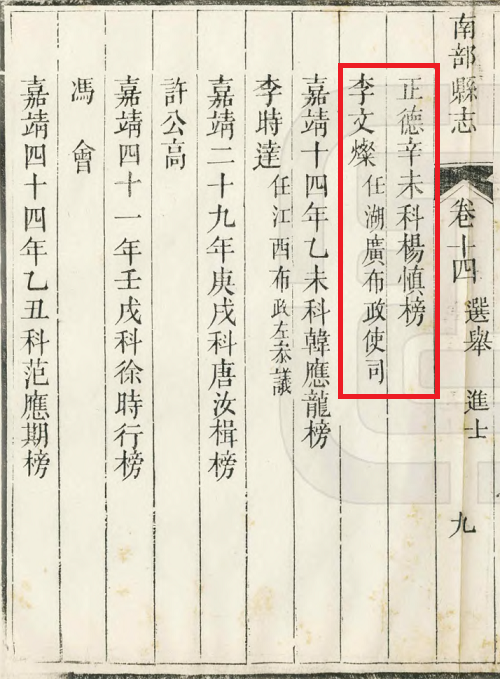 南部縣志
卷十四 選舉 進士 九
正德辛未科楊慎榜
李文燦 任湖廣布政使司
嘉靖十四年乙未科韓應龍榜
李時達 任江西布政左叅議
嘉靖二十九年庚戌科唐汝楫榜
許公高
嘉靖四十一年壬戌科徐時行榜
馮會
嘉靖四十四年乙丑科范應期榜